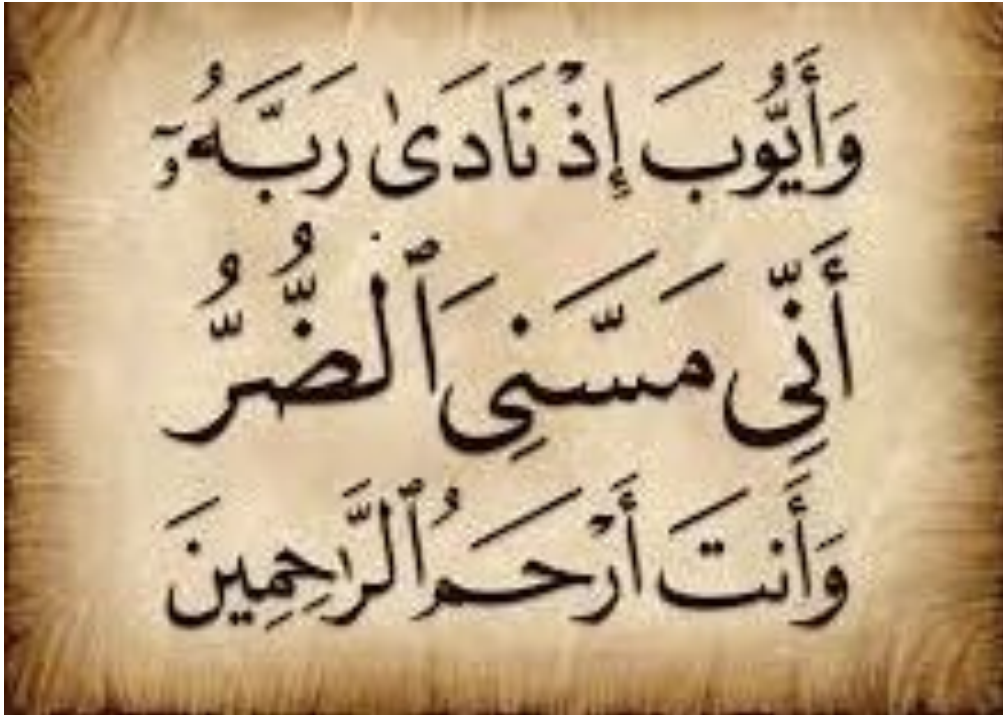 وَأَيُّوبَ إِذْ نَادَىٰ رَبَّهُۥٓ
أَنِّى مَسَّنِىَ ٱلضُّرُّ
وَأَنتَ أَرْحَمُ ٱلرَّٰحِمِينَ